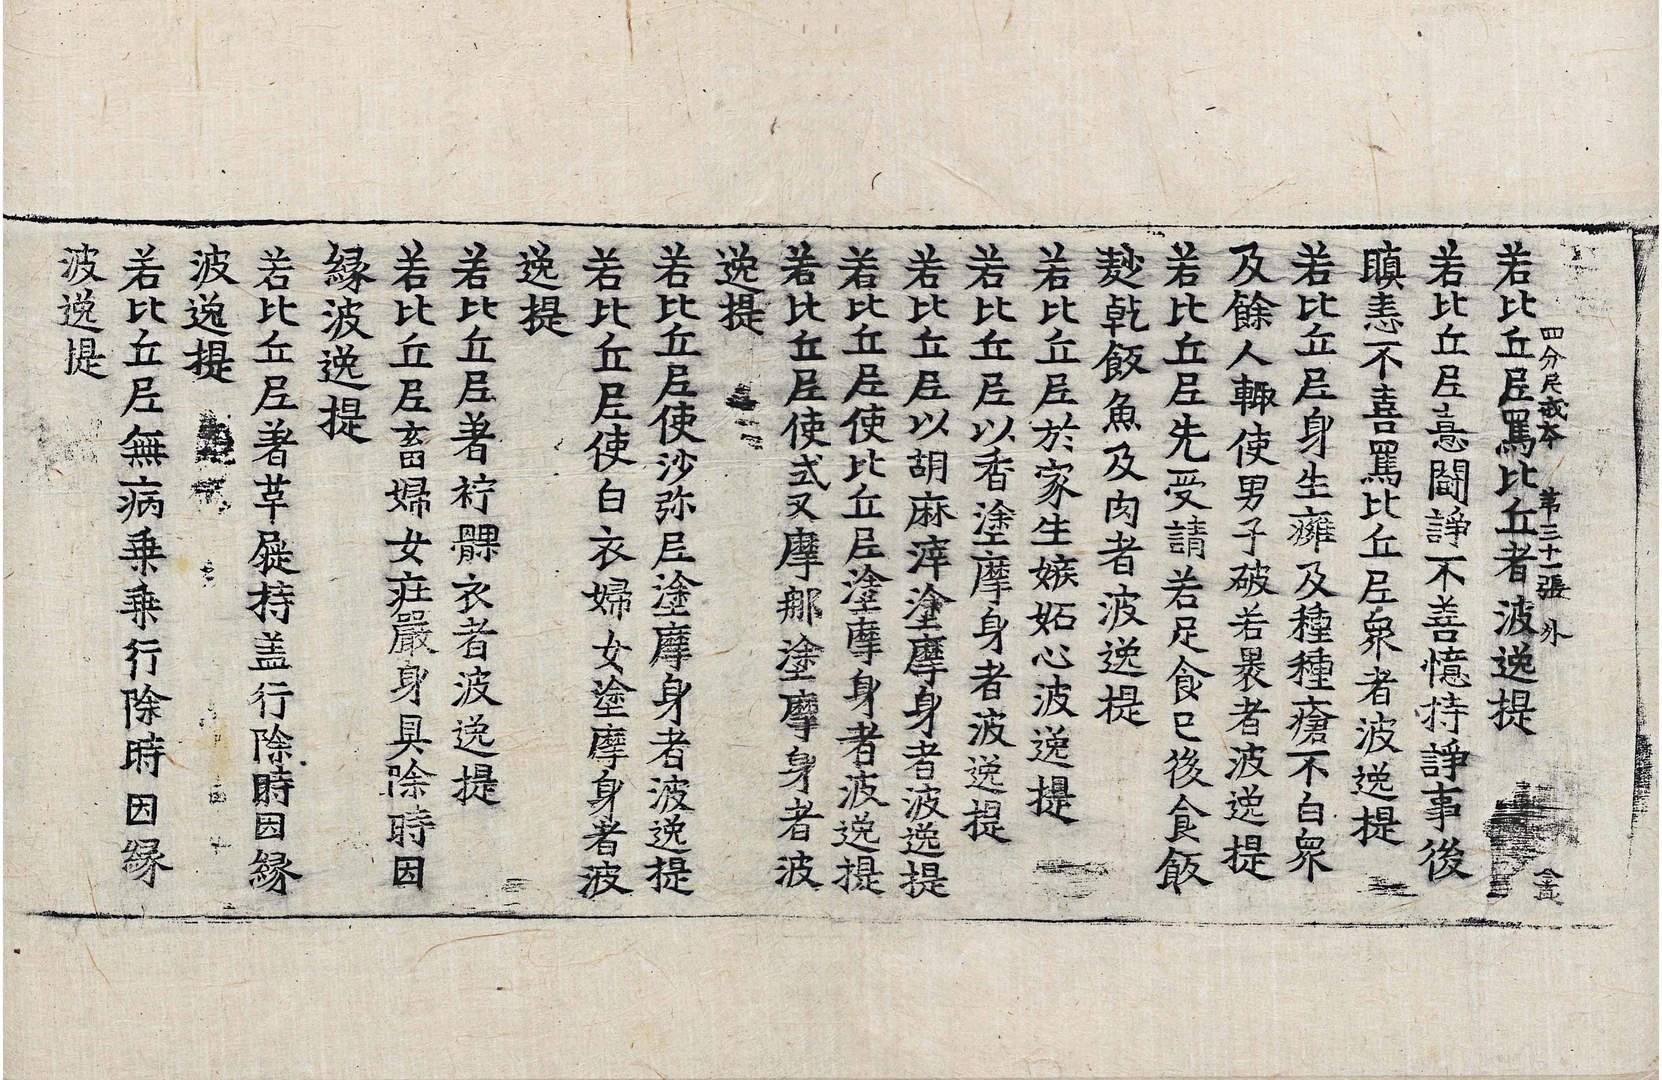 四分尼戒本　第三十一張　外
若比丘尼罵比丘者波逸提
若比丘尼憙鬪諍不善憶持諍事後
瞋恚不喜罵比丘尼衆者波逸提
若比丘尼身生癰及種種瘡不白衆
及餘人輙使男子破若裹者波逸提
若比丘尼先受請若足食已後食飯
麨乾飯魚及肉者波逸提
若比丘尼於家生嫉妬心波逸提
若比丘尼以香塗摩身者波逸提
若比丘尼以胡麻滓塗摩身者波逸提
若比丘尼使比丘尼塗摩身者波逸提
若比丘尼使式叉摩那塗摩身者波
逸提
若比丘尼使沙弥尼塗摩身者波逸提
若比丘尼使白衣婦女塗摩身者波
逸提
若比丘尼著䘢髁衣者波逸提
若比丘尼畜婦女庄嚴身具除時因
縁波逸提
若比丘尼著草屣持盖行除時因縁
波逸提
若比丘尼無病乗乗行除時因縁
波逸提